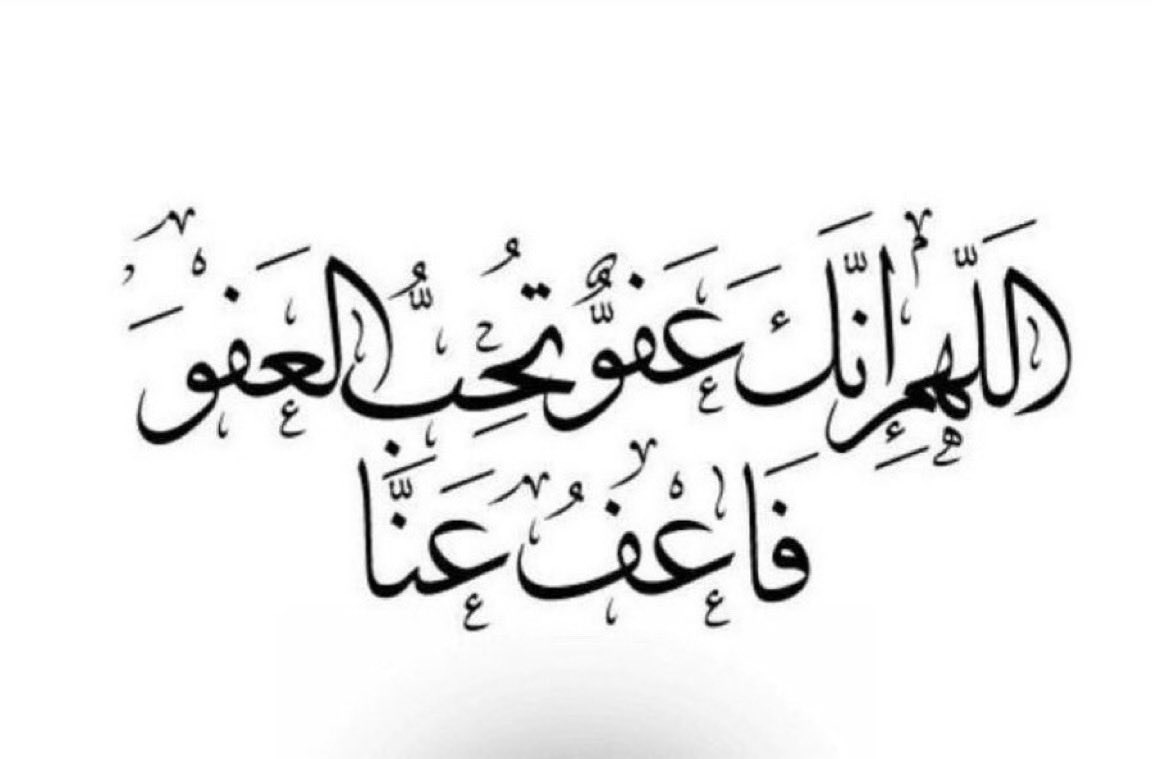 اللَّهمِ إِنَّكَ عَفوٌّ تُحِبُّ العَفْوَ
فَاعْفُ عَنَّا